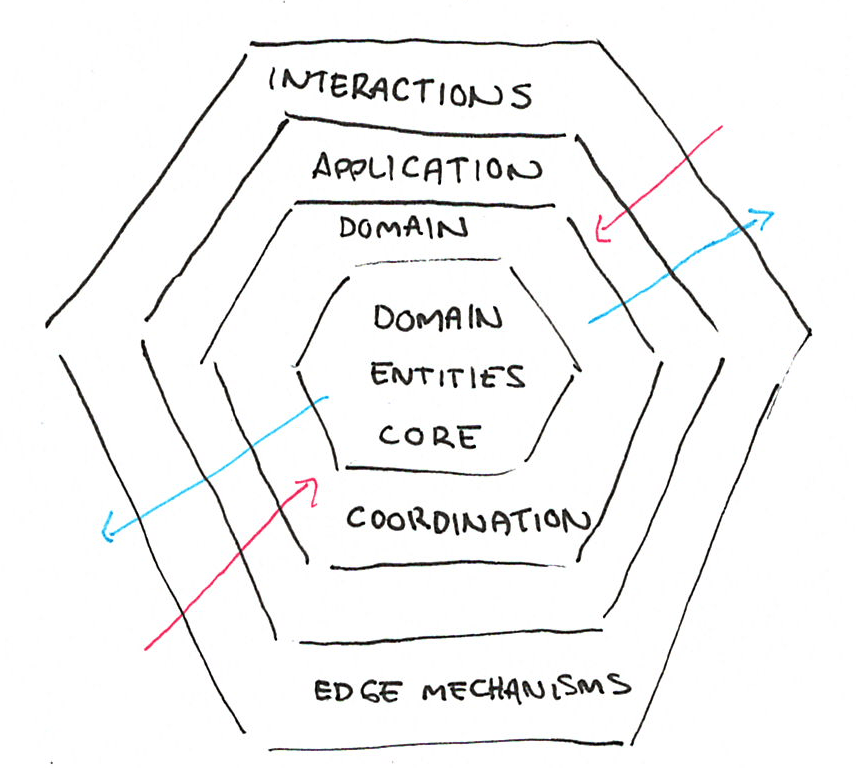 INTERACTIONS
APPLICATION
DOMAIN
DOMAIN
ENTITIES
CORE
COORDINATION
EDGE MECHANISMS